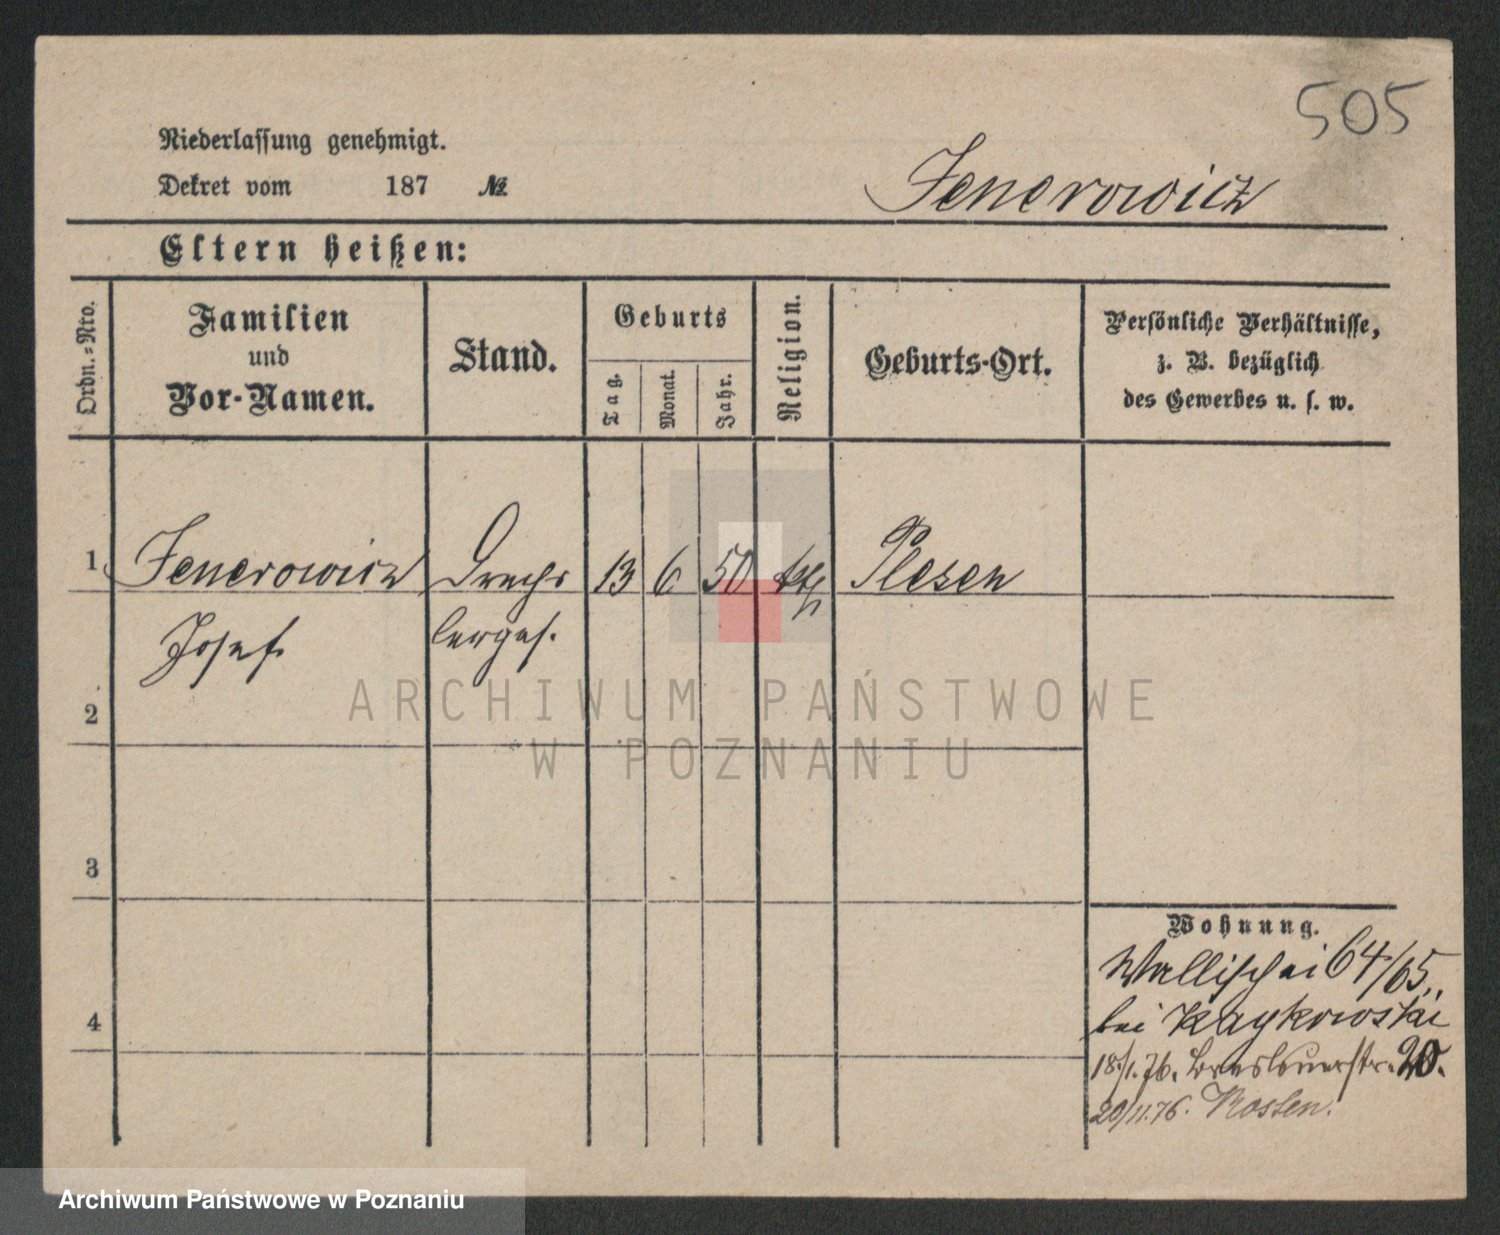 505
Niederlassung genehmigt.
Dekret vom 187 №
Jenerowicz
Eltern heißen:
Ordn.=Nro.
Familien
und
Vor-Namen.
Stand.
Geburts
Tag.
Monat.
Jahr.
Religion.
Geburts-Ort.
Persönliche Verhältnisse,
z. B. bezüglich
des Gewerbes u. s. w.
1 Jenerowicz Drechs 13 6 50 kth Plesen
Josef lerges.
2
ARCHIWUM PAŃSTWOWE
W POZNANIU
3
Wohnung.
Wallischei 64/65,
bei Kaykowski
4
18/1.76. Breslauerstr. 20.
20/11.76. Kosten.
Archiwum Państwowe w Poznaniu